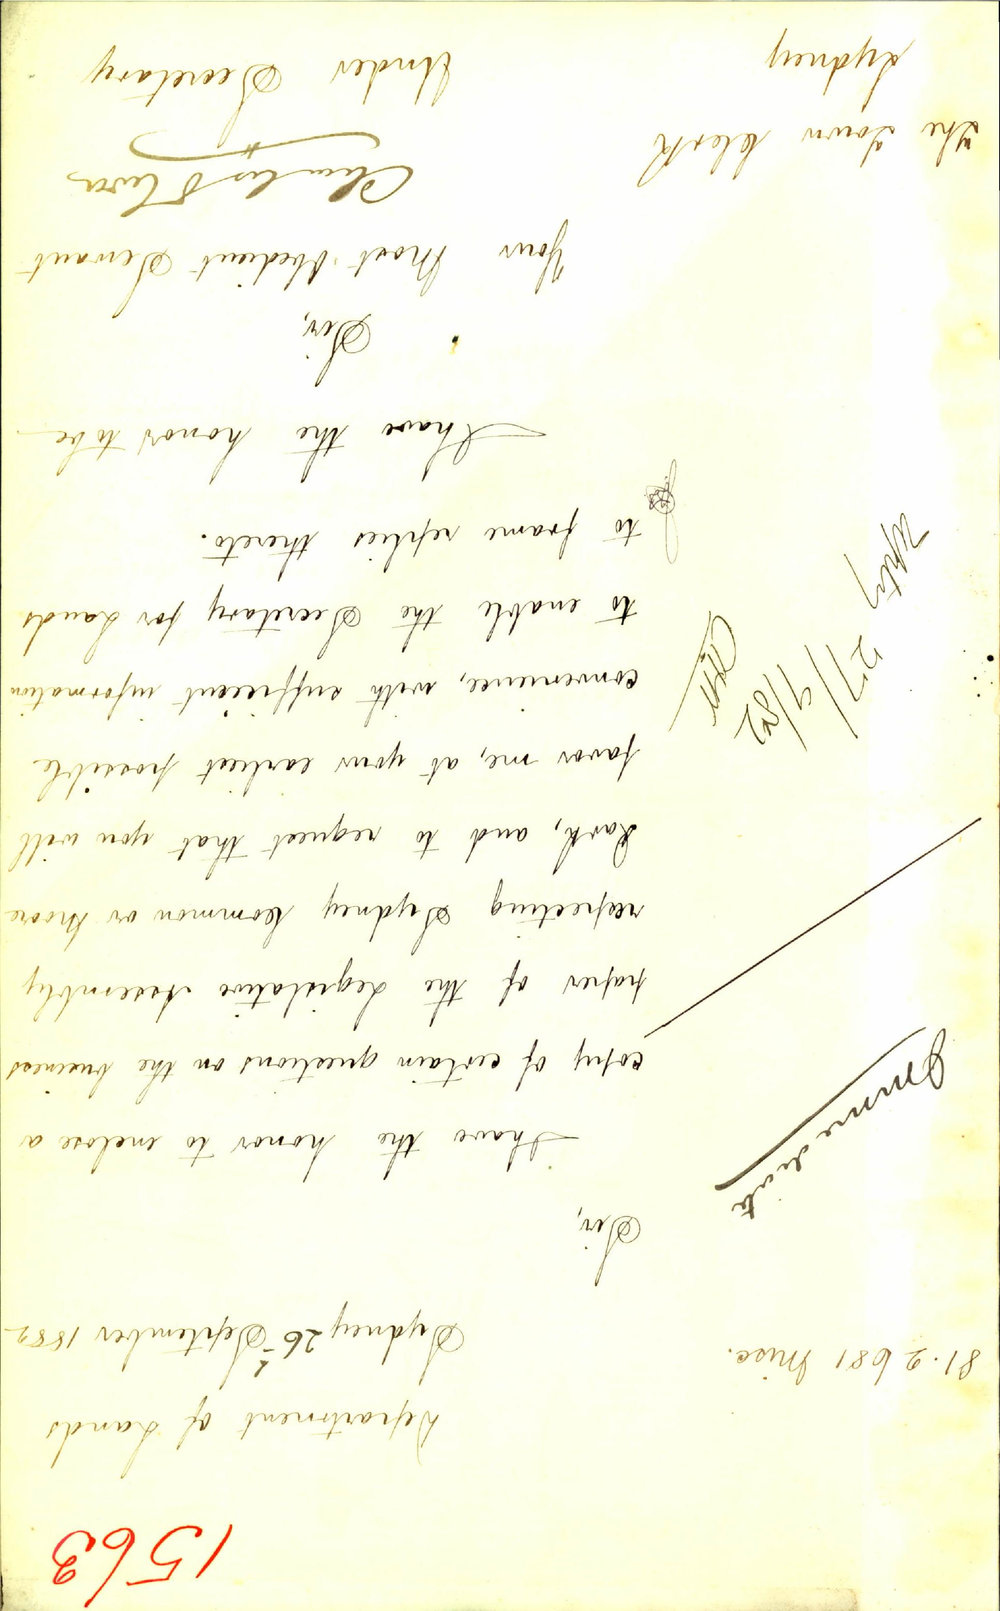 1563
Department of Lands
81.2681 Misc.
Sydney 26th September 1882
Sir,
I have the honor to enclose a
Immediate
copy of certain questions on the business
paper of the Legislative Assembly
respecting Sydney Common or Moore
Park, and to request that you will
favor me, at your earliest possible
convenience, with sufficient information
to enable the Secretary for Lands
to frame replies thereto.
27/9/82
I have the honor to be
Sir,
Your Most Obedient Servant
Charles Oliver
Under Secretary
The Town Clerk
Sydney